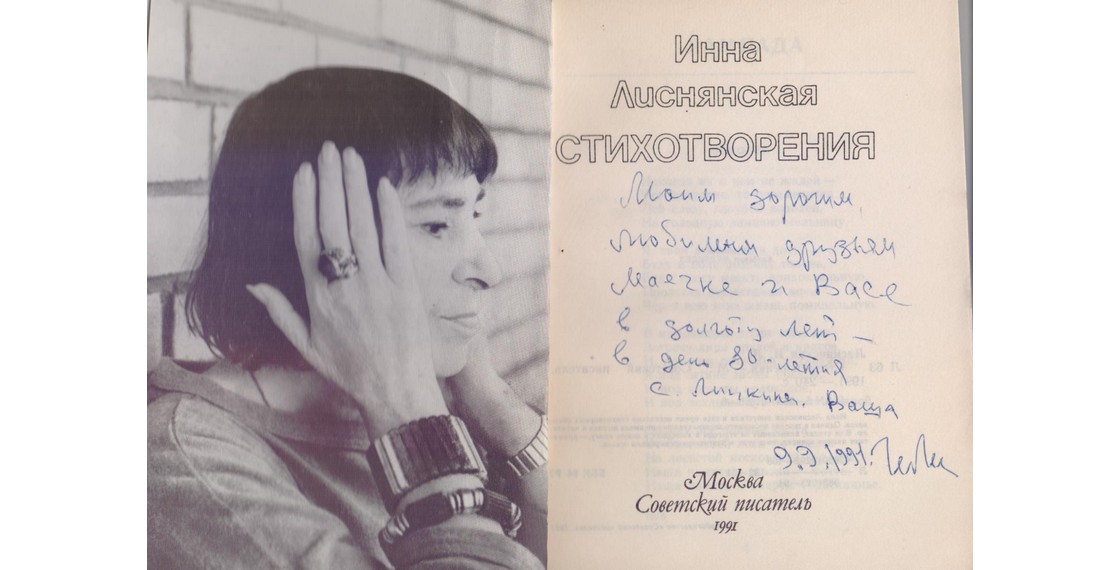 Инна
Лиснянская
СТИХОТВОРЕНИЯ
Моим дорогим,
любимым друзьям
Маечке и Васе
в долготу лет —
в день 80-летия
С. Липкина. Ваша
9.9.1991.
Москва
Советский писатель
1991